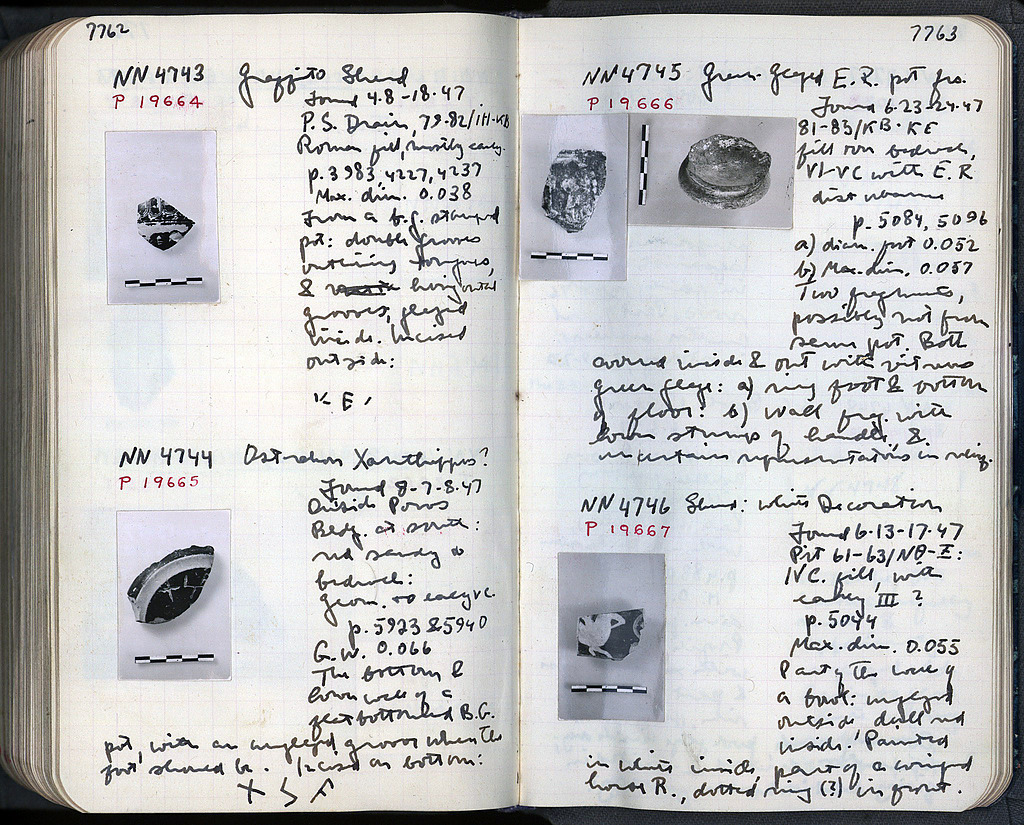 7762
NN 4743 Graffito Sherd
P 19664
Found 4.8-18.47
P.S. Drain, 79-82/ΙΗ-ΚΒ
Roman fill, mostly early.
p. 3983, 4227, 4237
Max. dim. 0.038
From a b.g. stamped
pot: double grooves
outlining tongues,
& horizontal
grooves, glazed
inside. Incised
outside:
Κ Ε
NN 4744 Ostrakon Xanthippos?
P 19665
Found 8-7-8.47
Outside Poros
Bldg. at south:
red sandy to
bedrock:
Geom. to early VC
p. 5923 & 5940
G.W. 0.066
The bottom &
lower wall of a
flat bottomed B.G.
pot, with an unglazed groove where the
foot should be. Incised on bottom:
7763
NN 4745 Green-Glazed E.R. pot fra.
P 19666
Found 6-23-24.47
81-83/ΚΒ-ΚΕ
fill on bedrock,
VI-VC with E.R
disturbance
p. 5084, 5096
a) diam. foot 0.052
b) Max. dim. 0.057
Two fragments,
possibly not from
same pot. Both
covered inside & out with vitreous
green glaze: a) ring foot & bottom
of floor: b) wall frag. with
lower stumps of handle, &
uncertain representations in relief.
NN 4746 Sherd: White Decoration
P 19667
Found 6-13-17-47
Pit 61-63/ΝΘ-Ξ:
IVC. fill, with
early III ?
p. 5044
Max. dim. 0.055
Part of the wall of
a bowl: unglazed
outside dull red
inside. Painted
in white inside, part of a winged
horse R., dotted ring (?) in front.